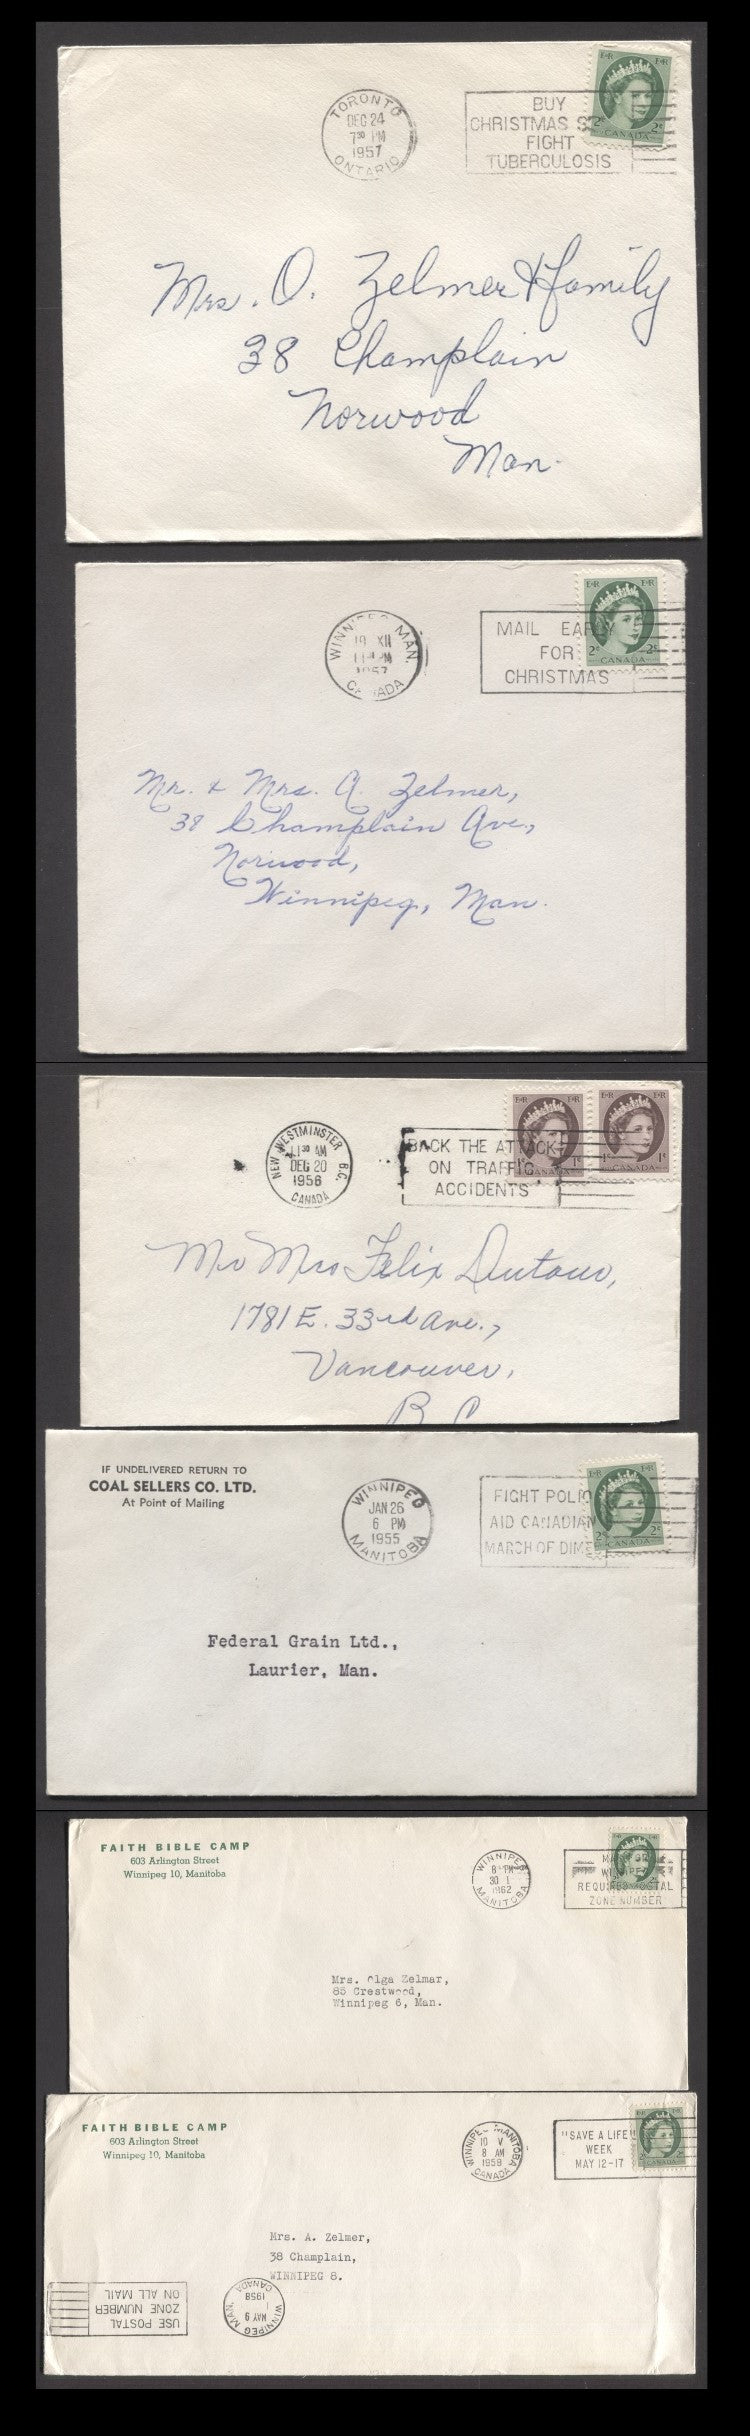 TORONTO
DEC 24
7³⁰ PM
1957
ONTARIO
BUY
CHRISTMAS S
FIGHT
TUBERCULOSIS
E·R E·R
2¢ 2¢
CANADA
Mrs. O. Zelmer & family
38 Champlain
Norwood
Man.
WINNIPEG MAN.
19 XII
PM
1957
CANADA
MAIL EARLY
FOR
CHRISTMAS
E·R E·R
2¢ 2¢
CANADA
Mr. & Mrs. A. Zelmer,
38 Champlain Ave.,
Norwood,
Winnipeg, Man.
NEW WESTMINSTER B.C.
11³⁰ AM
DEC 20
1956
CANADA
BACK THE ATTACK
ON TRAFFIC
ACCIDENTS
E·R E·R
1¢ 1¢
CANADA
E·R E·R
1¢ 1¢
CANADA
Mr Mrs Felix
1781 E. 33rd Ave.,
Vancouver,
B C
IF UNDELIVERED RETURN TO
COAL SELLERS CO. LTD.
At Point of Mailing
WINNIPEG
JAN 26
6 PM
1955
MANITOBA
FIGHT POLIO
AID CANADIAN
MARCH OF DIME
E·R E·R
2¢ 2¢
CANADA
Federal Grain Ltd.,
Laurier, Man.
FAITH BIBLE CAMP
603 Arlington Street
Winnipeg 10, Manitoba
WINNIPEG
8 PM
30 I
1962
MANITOBA
WINNIPEG
REQUIRES POSTAL
ZONE NUMBER
Mrs. Olga Zelmar,
85 Crestwood,
Winnipeg 6, Man.
FAITH BIBLE CAMP
603 Arlington Street
Winnipeg 10, Manitoba
WINNIPEG MANITOBA
10 V
8 AM
1958
CANADA
"SAVE A LIFE"
WEEK
MAY 12-17
E·R E·R
CANADA
Mrs. A. Zelmer,
38 Champlain,
WINNIPEG 8.
USE POSTAL
ZONE NUMBER
ON ALL MAIL
WINNIPEG MAN.
MAY 9
1958
CANADA